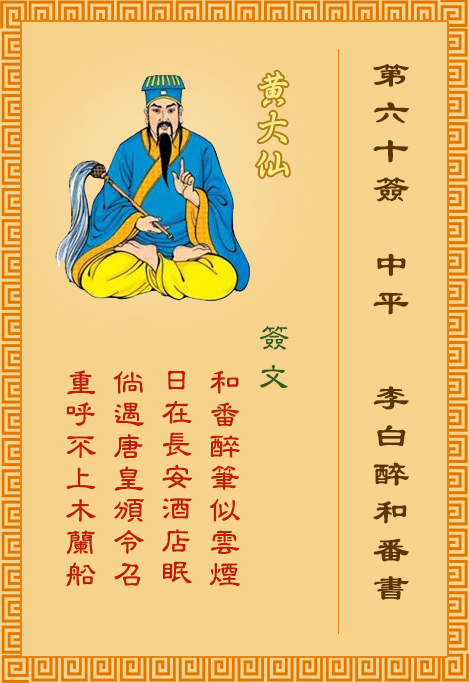 第六十簽 中平 李白醉和番書
黃大仙
簽文
和番醉筆似雲煙
日在長安酒店眠
倘遇唐皇頒令召
重呼不上木蘭船